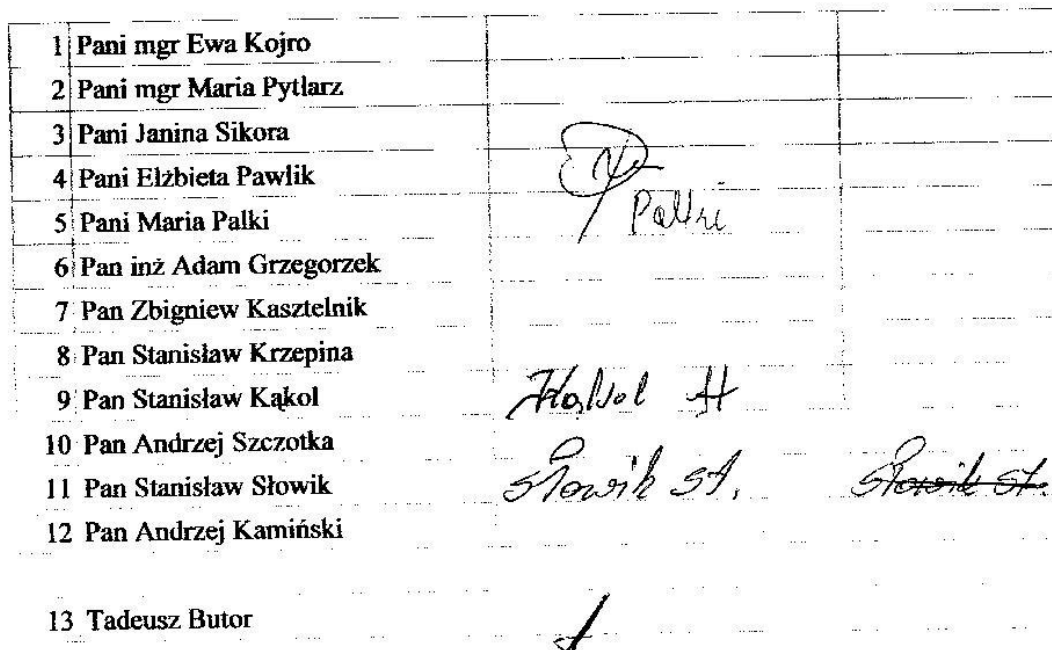 1 Pani mgr Ewa Kojro
2 Pani mgr Maria Pytlarz
3 Pani Janina Sikora
4 Pani Elżbieta Pawlik
5 Pani Maria Palki Palki
6 Pan inż Adam Grzegorzek
7 Pan Zbigniew Kasztelnik
8 Pan Stanisław Krzepina
9 Pan Stanisław Kąkol
10 Pan Andrzej Szczotka
11 Pan Stanisław Słowik Słowik St. Słowik St.
12 Pan Andrzej Kamiński
13 Tadeusz Butor